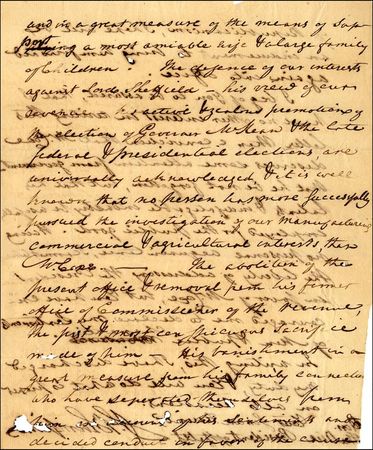 and in a great measure of the means of sup
porting a most amiable wife & a large family
of Children. The defence of our interests
against Lord Sheffield – his view of our
active & zealous promotion of
the election of Governor McKean & the late
federal & presidential elections are
universally acknowledged & it is well
known that no person has more successfully
pursued the investigation of our manufacturing
commercial & agricultural interests, than
Mr Coxe — The abolition of the
present office & removal from his former
office of Commissioner of the revenue,
the first & most conspicuous sacrifice
made of him His banishment in a
great measure from his family connection
who have seperated themselves from
him on account of his sentiments and
decided conduct in favor of the cause